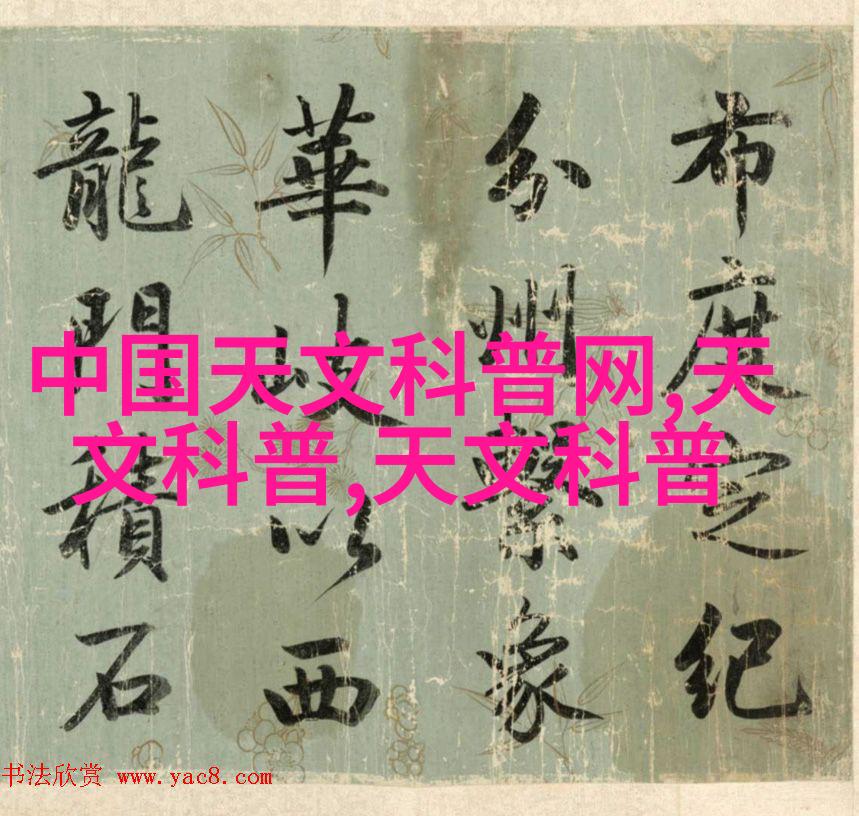 布度定纪
分州繫象
華岐以西
龍門積石
中国天文科普网,天
文科普,天文科普
书法欣赏 www.yac8.com